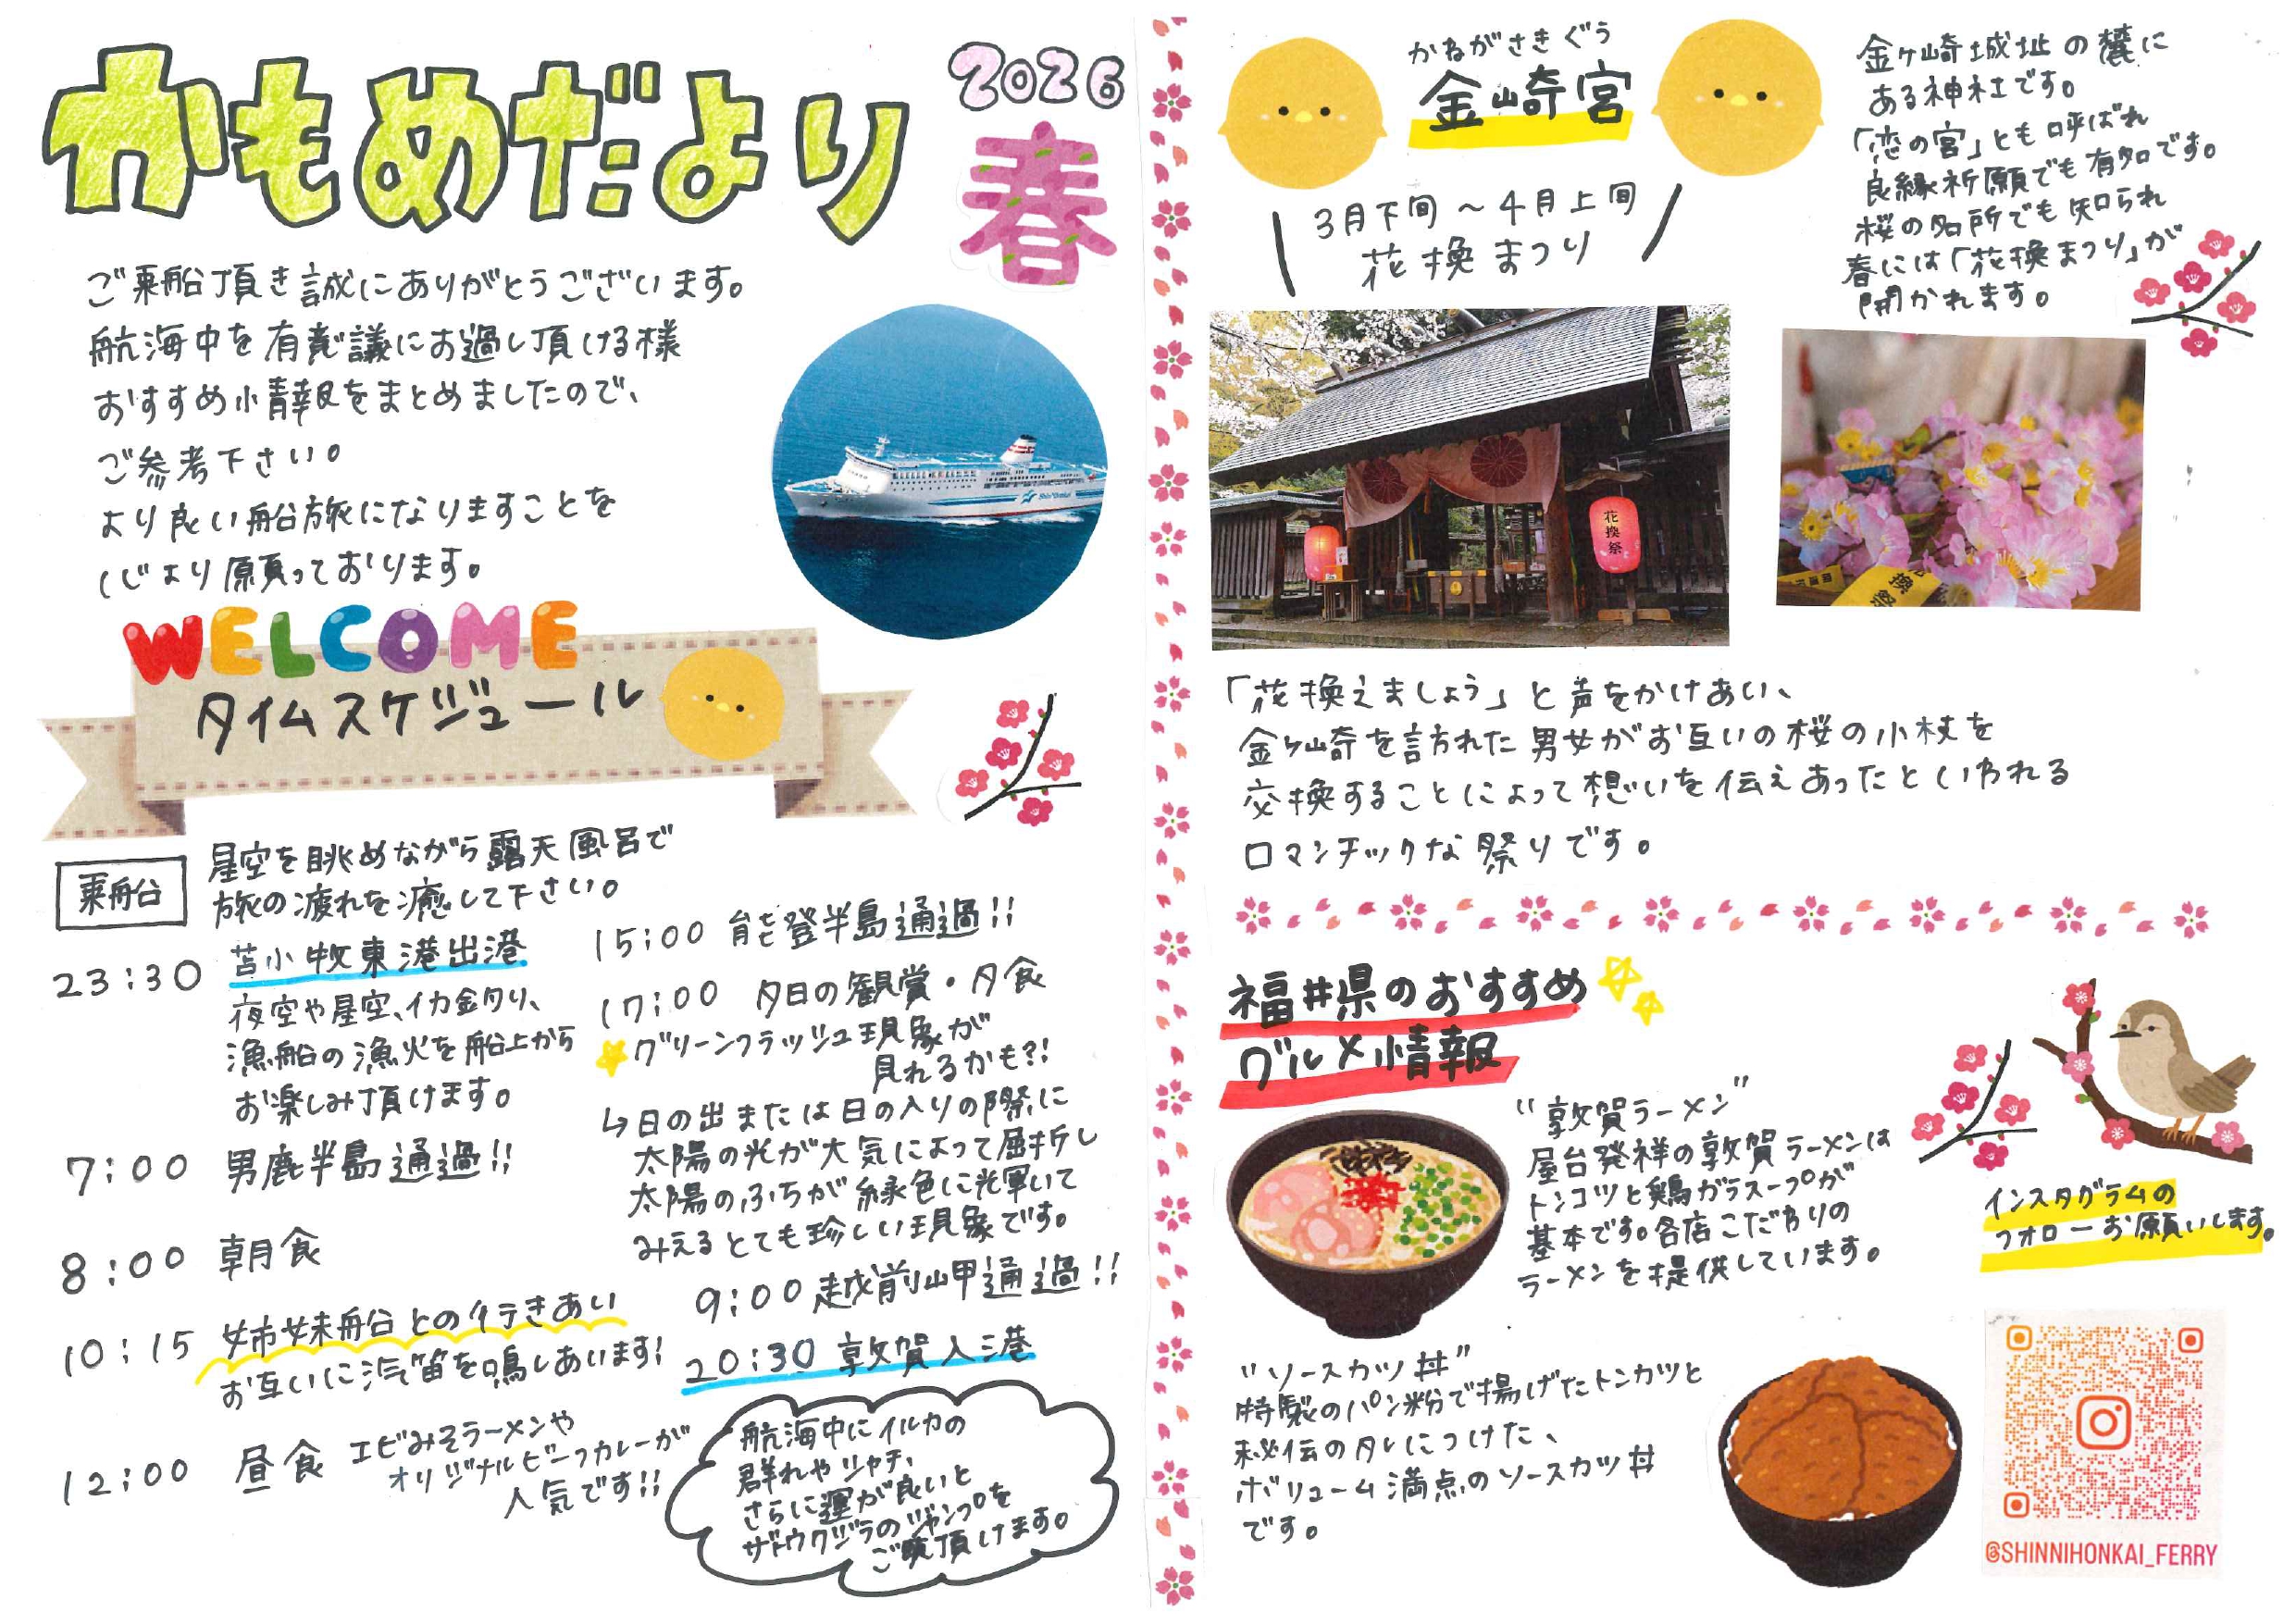 かもめだより
2026
春
ご乗船頂き誠にありがとうございます。
航海中を有意議にお過し頂ける様
おすすめ情報をまとめましたので、
ご参考下さい。
より良い船旅になりますことを
心より願っております。
WELCOME
タイムスケジュール
乗船
星空を眺めながら露天風呂で
旅の疲れを癒して下さい。
23:30 苫小牧東港出港
夜空や星空、イカ釣り、
漁船の漁火を船上から
お楽しみ頂けます。
7:00 男鹿半島通過!!
8:00 朝食
10:15 姉妹船との行きあい
お互いに汽笛を鳴しあいます!
12:00 昼食 エビみそラーメンや
オリジナルビーフカレーが
人気です!!
15:00 能登半島通過!!
17:00 夕日の観賞・夕食
グリーンフラッシュ現象が
見れるかも?!
↳日の出または日の入りの際に
太陽の光が大気によって屈折し
太陽のふちが緑色に光輝いて
みえるとても珍しい現象です。
9:00 越前岬通過!!
20:30 敦賀入港
航海中にイルカの
群れやシャチ、
さらに運が良いと
ザトウクジラのジャンプを
ご覧頂けます。
Shin Nihonkai
かねがさきぐう
金崎宮
3月下旬〜4月上旬
花換まつり
金ヶ崎城址の麓に
ある神社です。
「恋の宮」とも呼ばれ
良縁祈願でも有名です。
桜の名所でも知られ
春には「花換まつり」が
開かれます。
花換祭
「花換えましょう」と声をかけあい、
金ヶ崎を訪れた男女がお互いの桜の小枝を
交換することによって想いを伝えあったといわれる
ロマンチックな祭りです。
福井県のおすすめ
グルメ情報
"敦賀ラーメン"
屋台発祥の敦賀ラーメンは
トンコツと鶏ガラスープが
基本です。各店こだわりの
ラーメンを提供しています。
"ソースカツ丼"
特製のパン粉で揚げたトンカツと
秘伝のタレにつけた、
ボリューム満点のソースカツ丼
です。
インスタグラムの
フォローお願いします。
@SHINNIHONKAI_FERRY